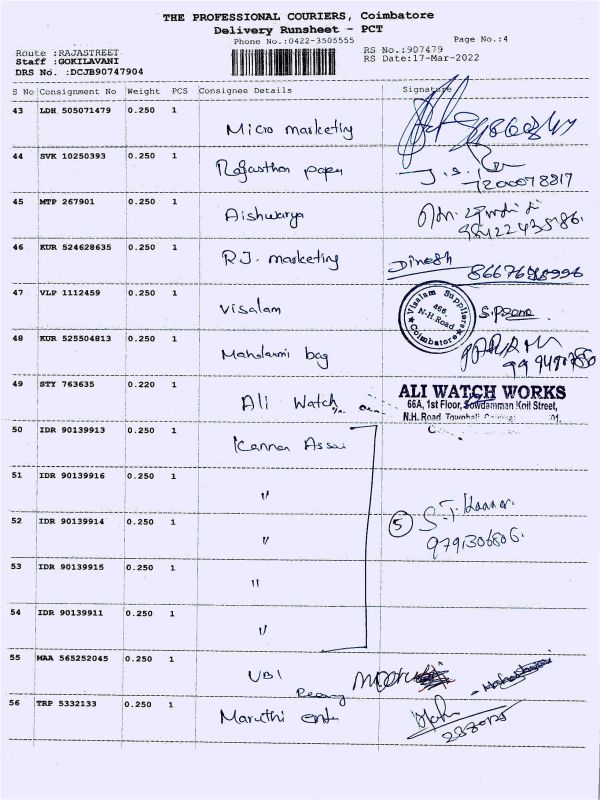 THE PROFESSIONAL COURIERS, Coimbatore
Delivery Runsheet - PCT
Phone No.:0422-3505555 Page No.:4
Route :RAJASTREET RS No.:907479
Staff :GOKILAVANI RS Date:17-Mar-2022
DRS No. :DCJB90747904
S No Consignment No Weight PCS Consignee Details Signature
43 LDH 505071479 0.250 1 Micro marketing
44 SVK 10250393 0.250 1 Rajasthan paper
7200078817
45 MTP 267901 0.250 1 Aishwarya
46 KUR 524628635 0.250 1 R.J. marketing Dinesh
47 VLP 1112459 0.250 1 visalam
Visalam Supplies
466,
N-H. Road
Coimbatore
48 KUR 525504813 0.250 1 bag
49 STY 763635 0.220 1 Ali Watch
ALI WATCH WORKS
66A, 1st Floor, Sowdamman Koil Street,
N.H. Road
50 IDR 90139913 0.250 1 Kannan
51 IDR 90139916 0.250 1 "
52 IDR 90139914 0.250 1 " 5 S.T.
9791306806.
53 IDR 90139915 0.250 1 "
54 IDR 90139911 0.250 1 "
55 MAA 565252045 0.250 1 UBI
56 TRP 5332133 0.250 1 Maruthi